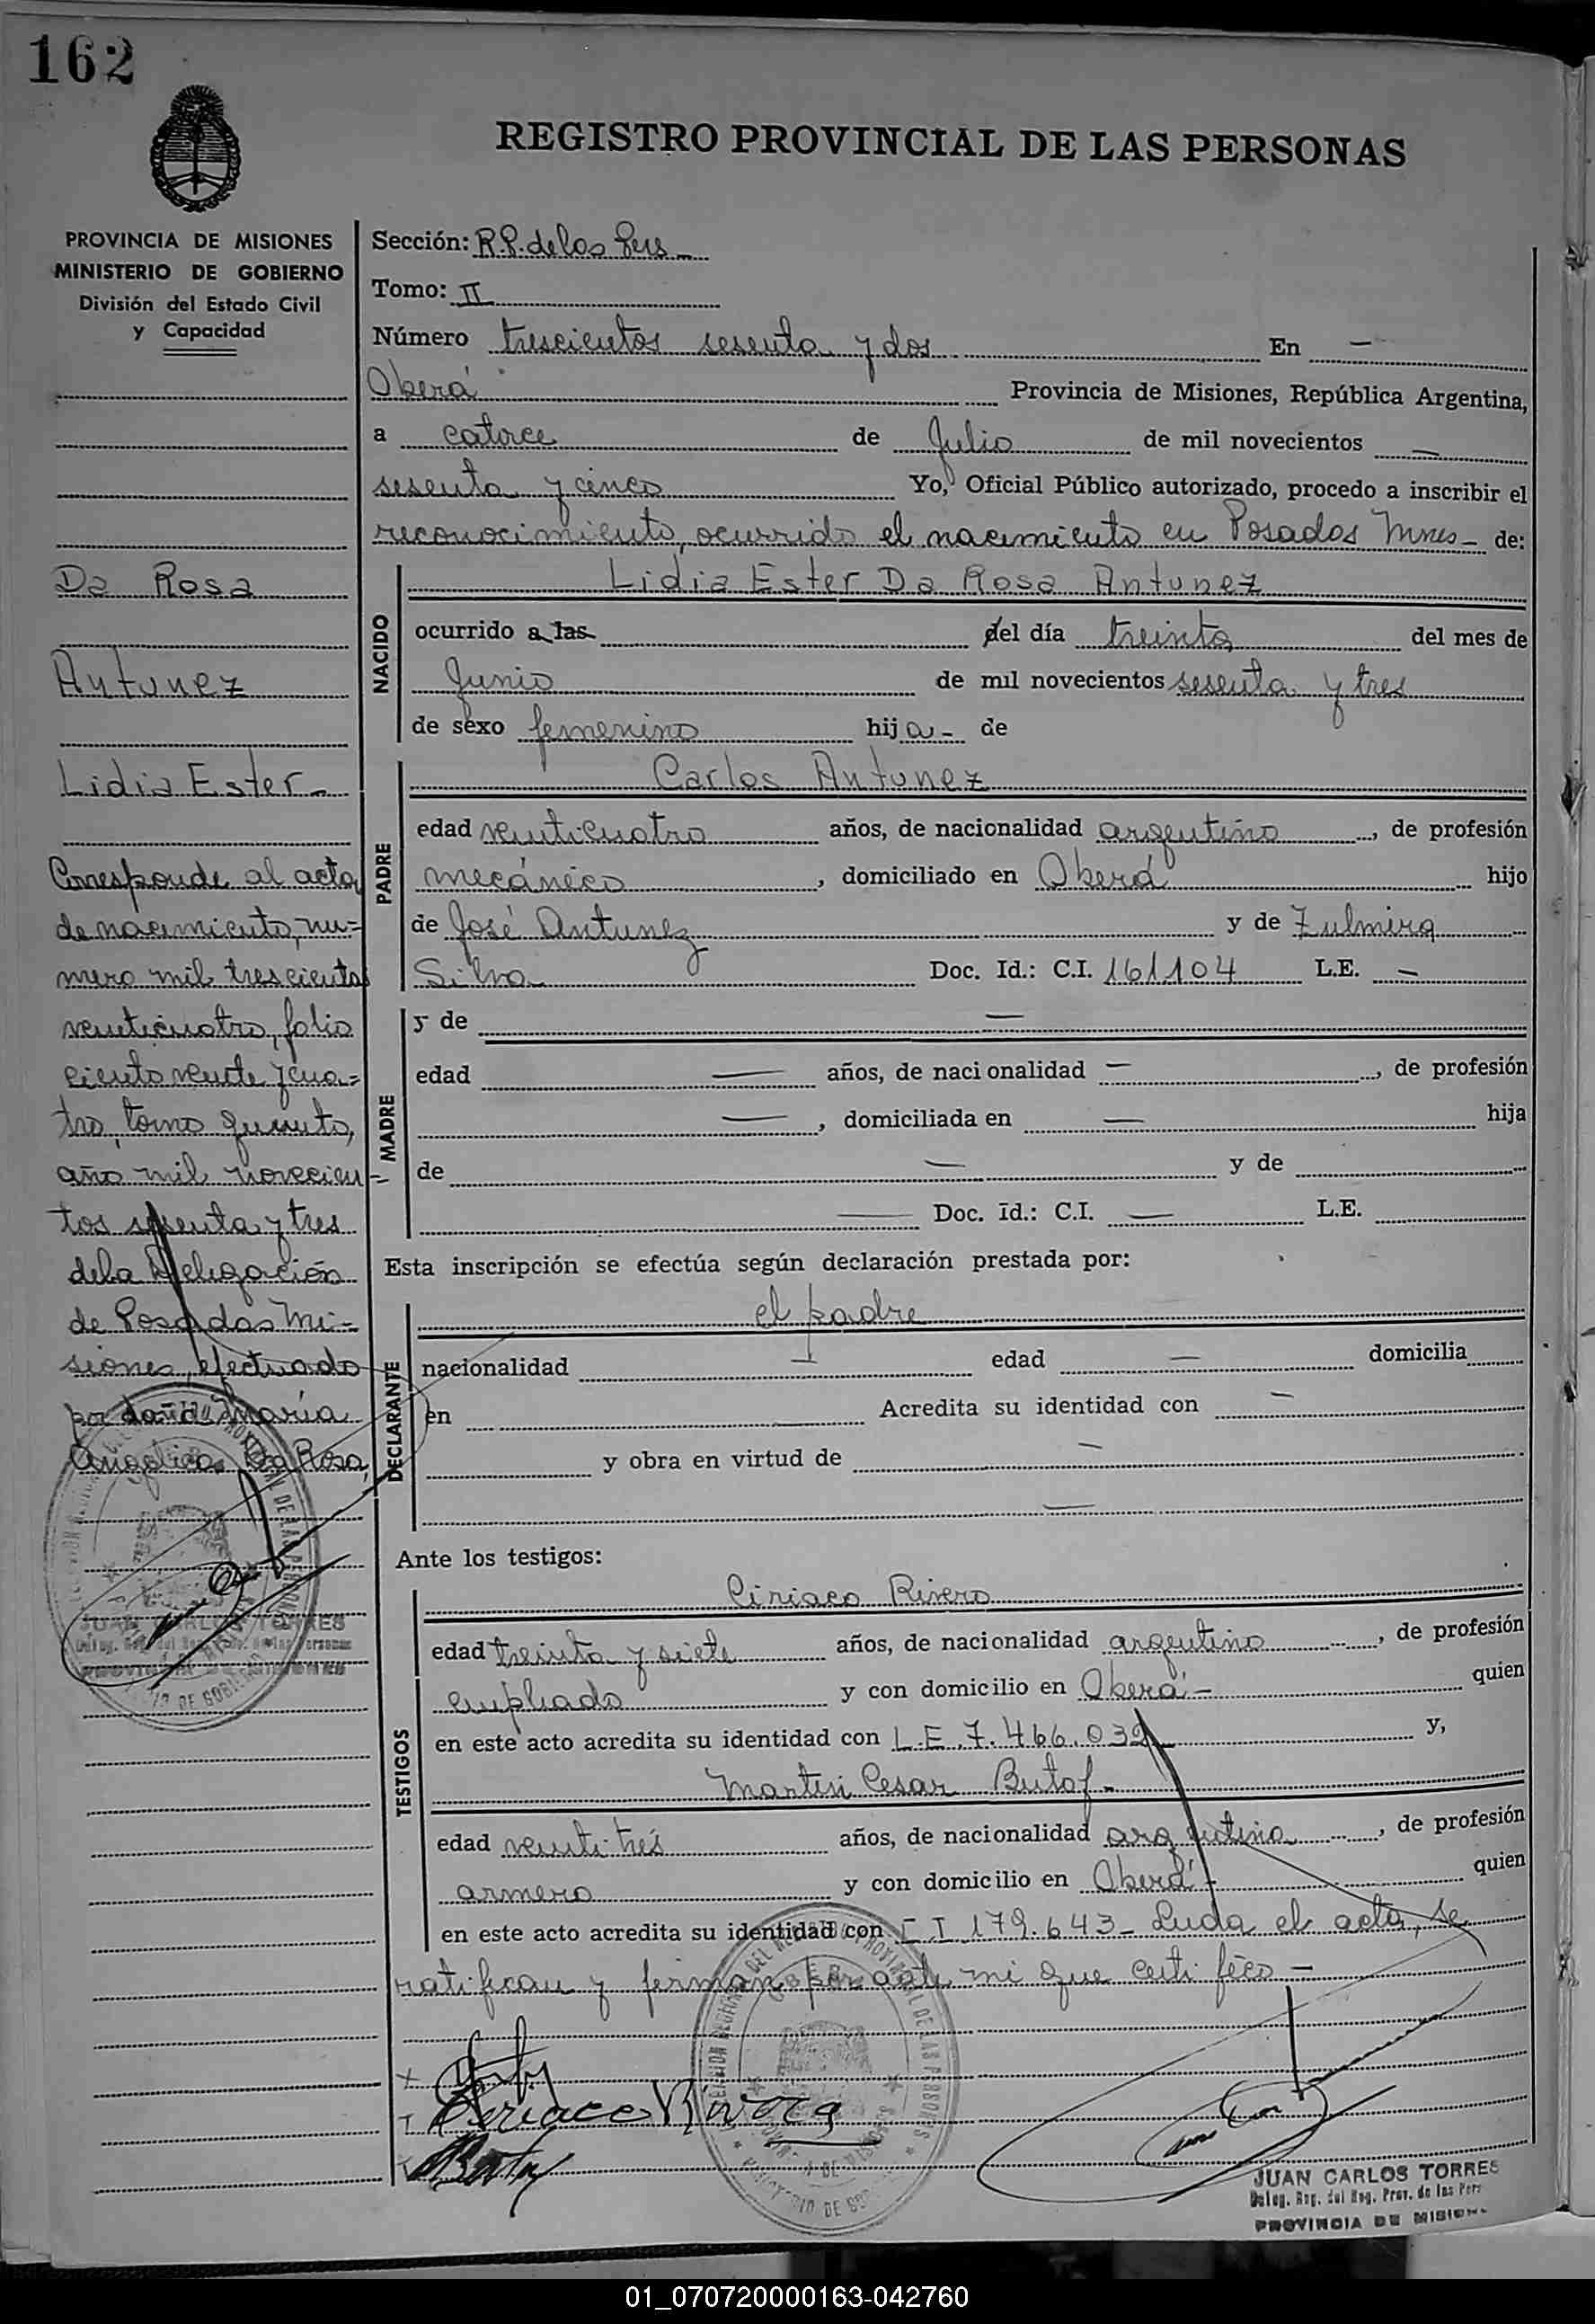 162
REGISTRO PROVINCIAL DE LAS PERSONAS
PROVINCIA DE MISIONES
MINISTERIO DE GOBIERNO
División del Estado Civil
y Capacidad
Da Rosa
Antunez
Lidia Ester-
Corresponde al acta
de nacimiento, nu=
mero mil trescientos
veinticuatro, folio
ciento veinte y cua=
tro, tomo quinto,
año mil novecien=
tos sesenta y tres
de la Delegación
de Posadas Mi-
siones, efectuado
por doña María
Angelica Da Rosa
JUAN CARLOS TORRES
Sección: R.P. de las Pers -
Tomo: II
Número trescientos sesenta y dos En -
Oberá Provincia de Misiones, República Argentina,
a catorce de Julio de mil novecientos -
sesenta y cinco Yo, Oficial Público autorizado, procedo a inscribir el
reconocimiento, ocurrido el nacimiento en Posadas Mnes - de:
NACIDO
Lidia Ester Da Rosa Antunez
ocurrido a las del día treinta del mes de
Junio de mil novecientos sesenta y tres
de sexo femenino hija - de
PADRE
Carlos Antunez
edad veinticuatro años, de nacionalidad argentino, de profesión
mecánico, domiciliado en Oberá hijo
de José Antunez y de Zulmira
Silva Doc. Id.: C.I. 161104 L.E. -
MADRE
y de -
edad - años, de nacionalidad -, de profesión
-, domiciliada en - hija
de - y de
- Doc. Id.: C.I. - L.E.
Esta inscripción se efectúa según declaración prestada por:
DECLARANTE
el padre
nacionalidad - edad - domicilia
en Acredita su identidad con -
y obra en virtud de -
-
Ante los testigos:
TESTIGOS
Ciriaco Rivero
edad treinta y siete años, de nacionalidad argentino, de profesión
empleado y con domicilio en Oberá - quien
en este acto acredita su identidad con L.E. 7.466.032 y,
Martin Cesar Butof -
edad veinti trés años, de nacionalidad argentino, de profesión
armero y con domicilio en Oberá - quien
en este acto acredita su identidad con C I 179.643 - Leida el acta, se
ratifican y firman por ante mi que certifico -
JUAN CARLOS TORRES
Deleg. Reg. del Reg. Prov. de las Pers
PROVINCIA DE MISION
01_070720000163-042760